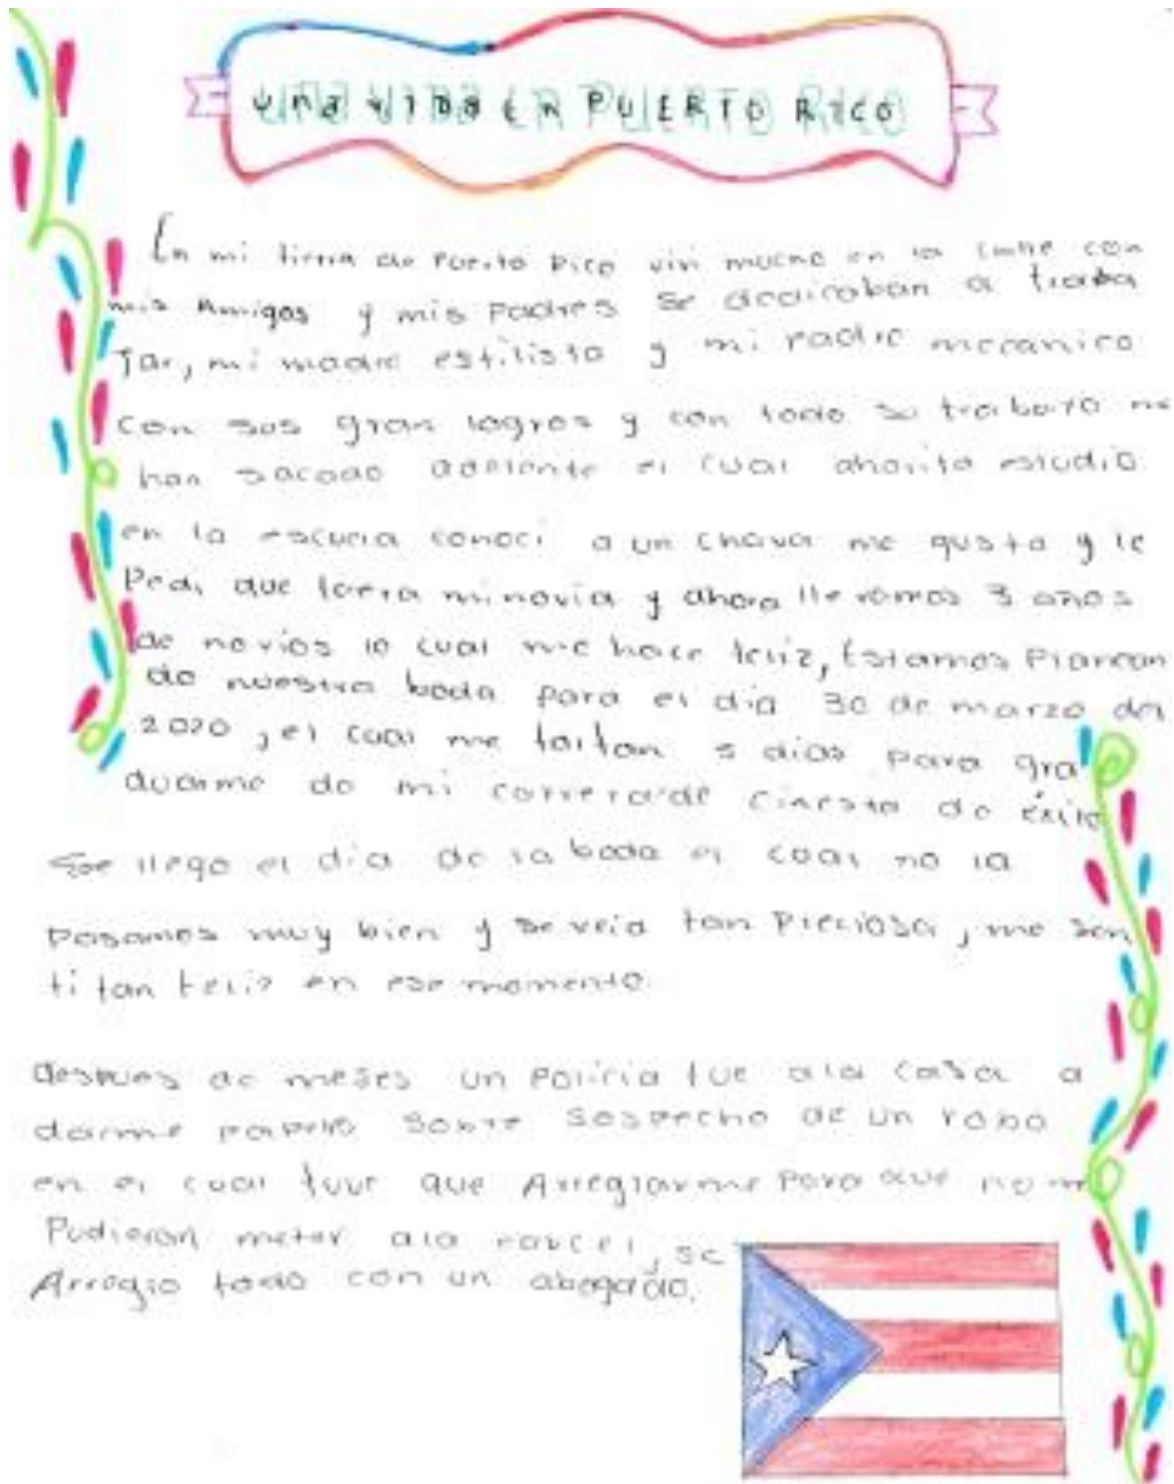 UNA VIDA EN PUERTO RICO
En mi tierra de Puerto Rico vivi mucho en la calle con
mis Amigos y mis Padres se dedicaban a traba
Jar, mi madre estilista y mi Padre mecanico
con sus gran logros y con todo su trabajo me
han sacado adelante el cual ahorita estudio
en la escuela conoci a un chava me gusto y le
Pedi que fuera mi novia y ahora llevamos 3 años
de novios lo cual me hace feliz, Estamos Planean
do nuestra boda para el dia 30 de marzo del
2020, el cual me faltan 5 dias para gra
duarme de mi carrera de de éxito
Se llego el dia de la boda el cual no la
Pasamos muy bien y se veia tan Preciosa, me sen
ti tan feliz en ese momento.
despues de meses un Policia fue ala casa a
darme Sobre Sospecho de un robo
en el cual tuve que Arreglarme Para que no m
Pudieran meter ala carcel, se
Arreglo todo con un abogado.